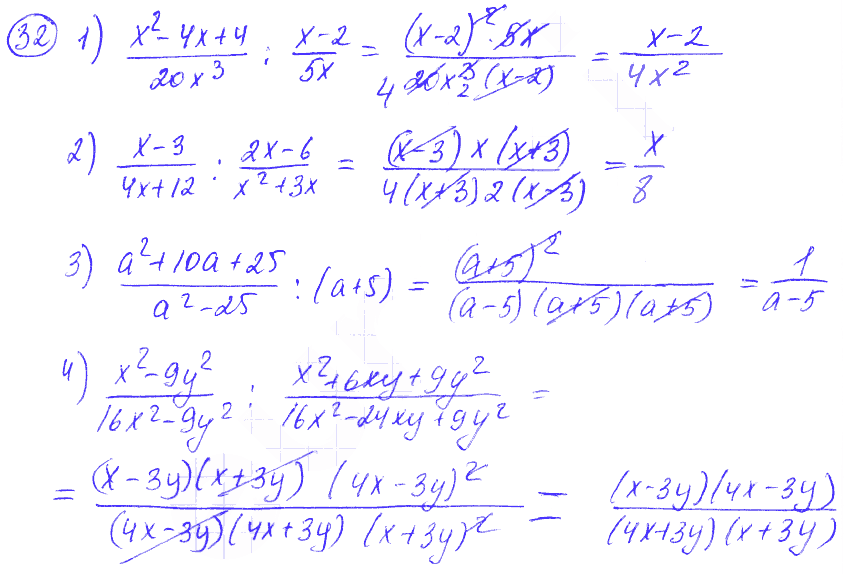 32 1) (x² - 4x + 4)/(20x³) : (x - 2)/(5x) = ((x-2)² · 5x)/(4 20x³ 2 (x-2)) = (x - 2)/(4x²)
2) (x - 3)/(4x + 12) : (2x - 6)/(x² + 3x) = ((x-3) x (x+3))/(4(x+3) 2 (x-3)) = x/8
3) (a² + 10a + 25)/(a² - 25) : (a+5) = (a+5)²/((a-5)(a+5)(a+5)) = 1/(a-5)
4) (x² - 9y²)/(16x² - 9y²) : (x² + 6xy + 9y²)/(16x² - 24xy + 9y²) =
= ((x - 3y)(x + 3y) (4x - 3y)²)/((4x - 3y)(4x + 3y) (x + 3y)²) = ((x-3y)(4x-3y))/((4x+3y)(x+3y))